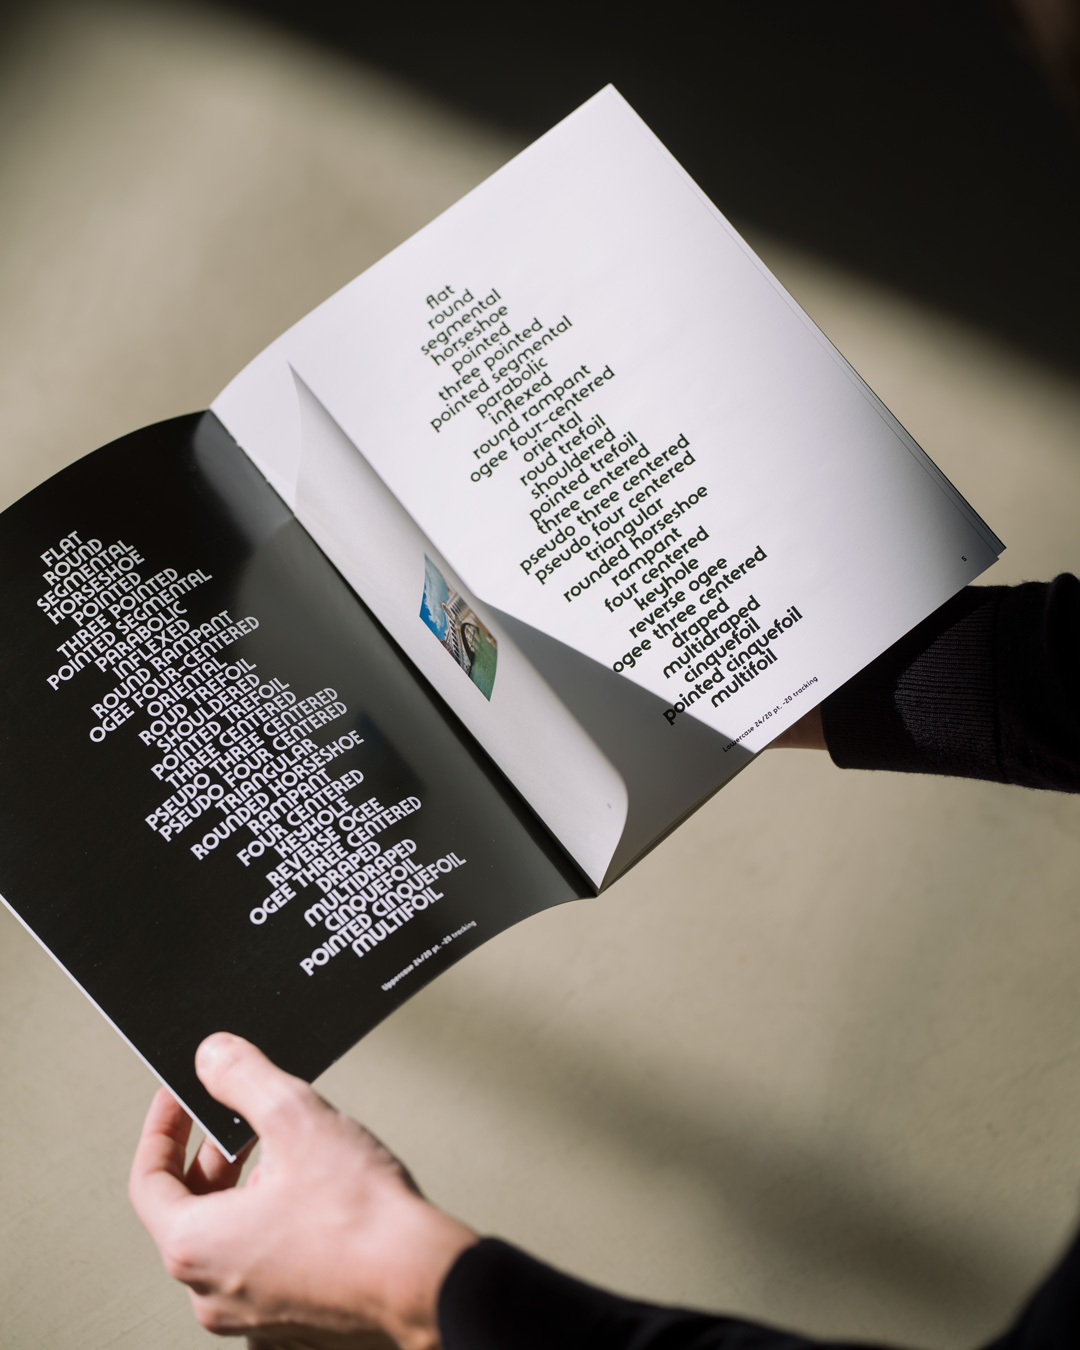 FLAT
ROUND
SEGMENTAL
HORSESHOE
POINTED
THREE POINTED
POINTED SEGMENTAL
PARABOLIC
INFLEXED
ROUND RAMPANT
OGEE FOUR-CENTERED
ORIENTAL
ROUD TREFOIL
SHOULDERED
POINTED TREFOIL
THREE CENTERED
PSEUDO THREE CENTERED
PSEUDO FOUR CENTERED
TRIANGULAR
ROUNDED HORSESHOE
RAMPANT
FOUR CENTERED
KEYHOLE
REVERSE OGEE
OGEE THREE CENTERED
DRAPED
MULTIDRAPED
CINQUEFOIL
POINTED CINQUEFOIL
MULTIFOIL
Uppercase 24/20 pt. -20 tracking
flat
round
segmental
horseshoe
pointed
three pointed
pointed segmental
parabolic
inflexed
round rampant
ogee four-centered
oriental
roud trefoil
shouldered
pointed trefoil
three centered
pseudo three centered
pseudo four centered
triangular
rounded horseshoe
rampant
four centered
keyhole
reverse ogee
ogee three centered
draped
multidraped
cinquefoil
pointed cinquefoil
multifoil
Lowercase 24/20 pt. -20 tracking